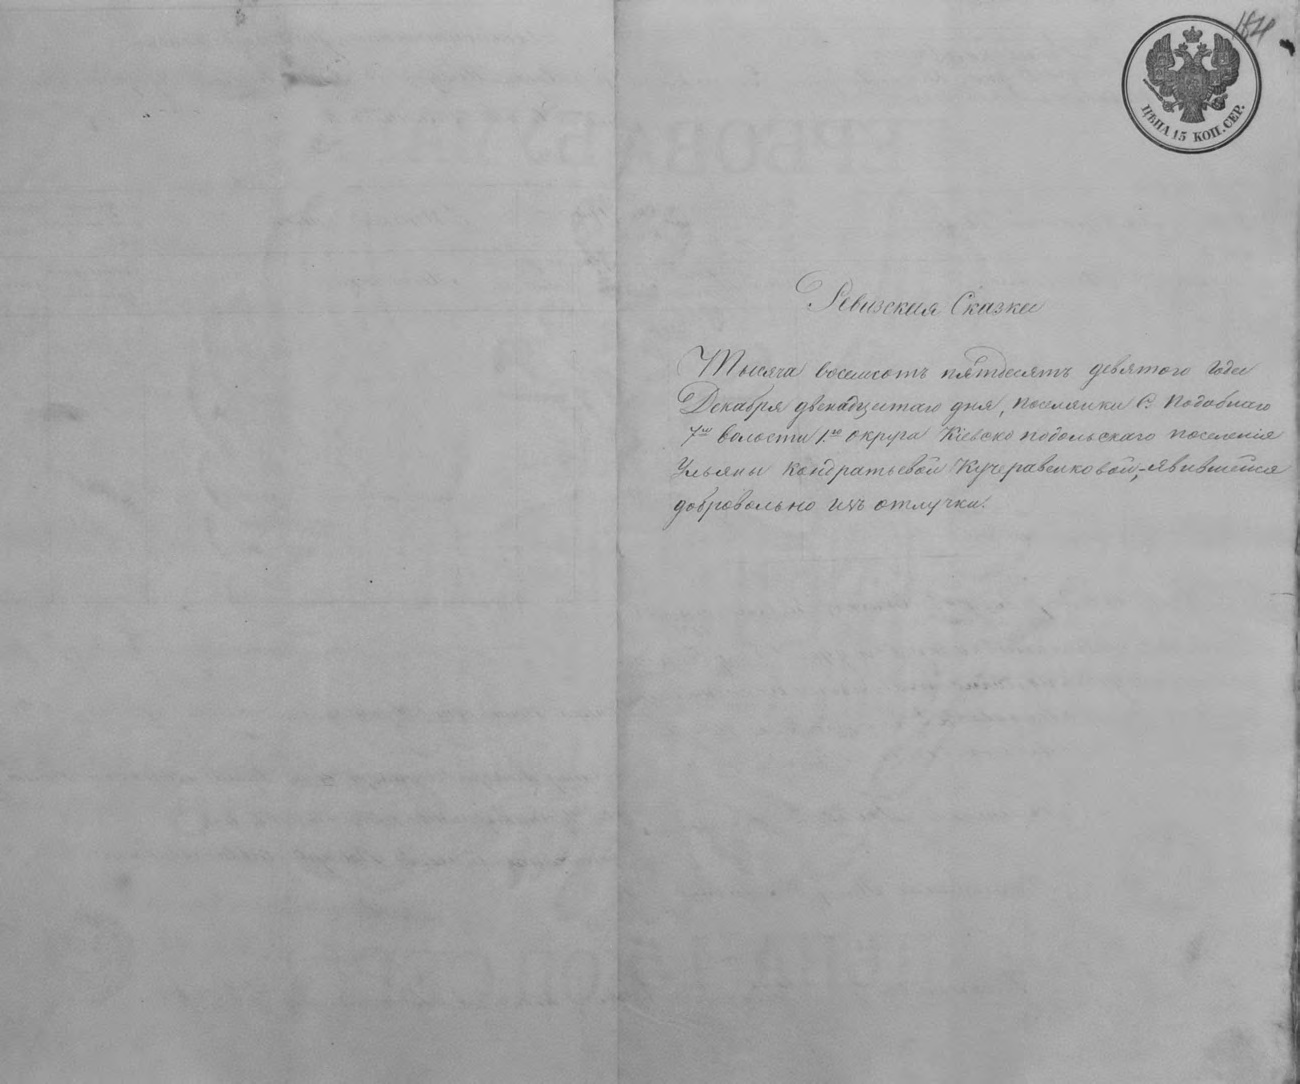 184
ЦѢНА 15 КОП. СЕР.
Ревизския Сказки
Тысяча восемсотъ пятдесятъ девятого года
Декабря двенадцатаго дня, поселянки С. Подобнаго
7й волости 1го округа Кіевско подольскаго поселенія
Ульяны Кондратьевой Кучеравенковой, явившейся
добровольно изъ отлучки.